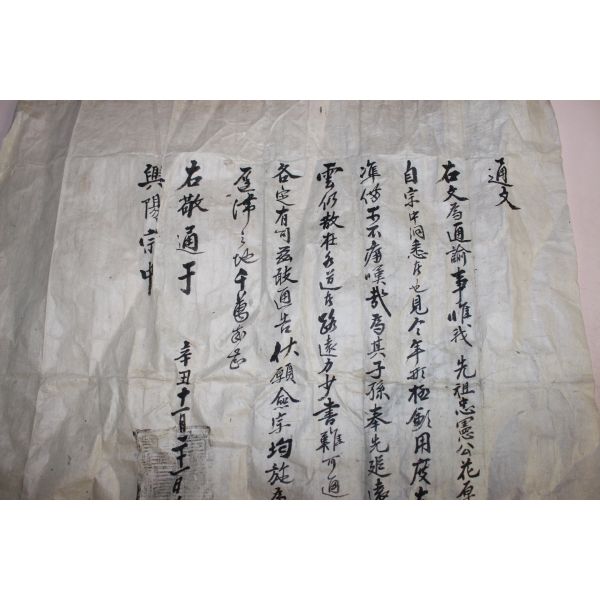 通文
右文爲通諭事惟我 先祖忠憲公花原
自宗中洞悉 也見今年形極歉用度
準備 不痛嘆哉爲其子孫奉先追遠
雲仍散在各道 路遠力少書難可通
各定有司玆敢通告伏願僉宗均施
之地千萬幸甚
右敬通于
興陽宗中
辛丑十一月二十一日